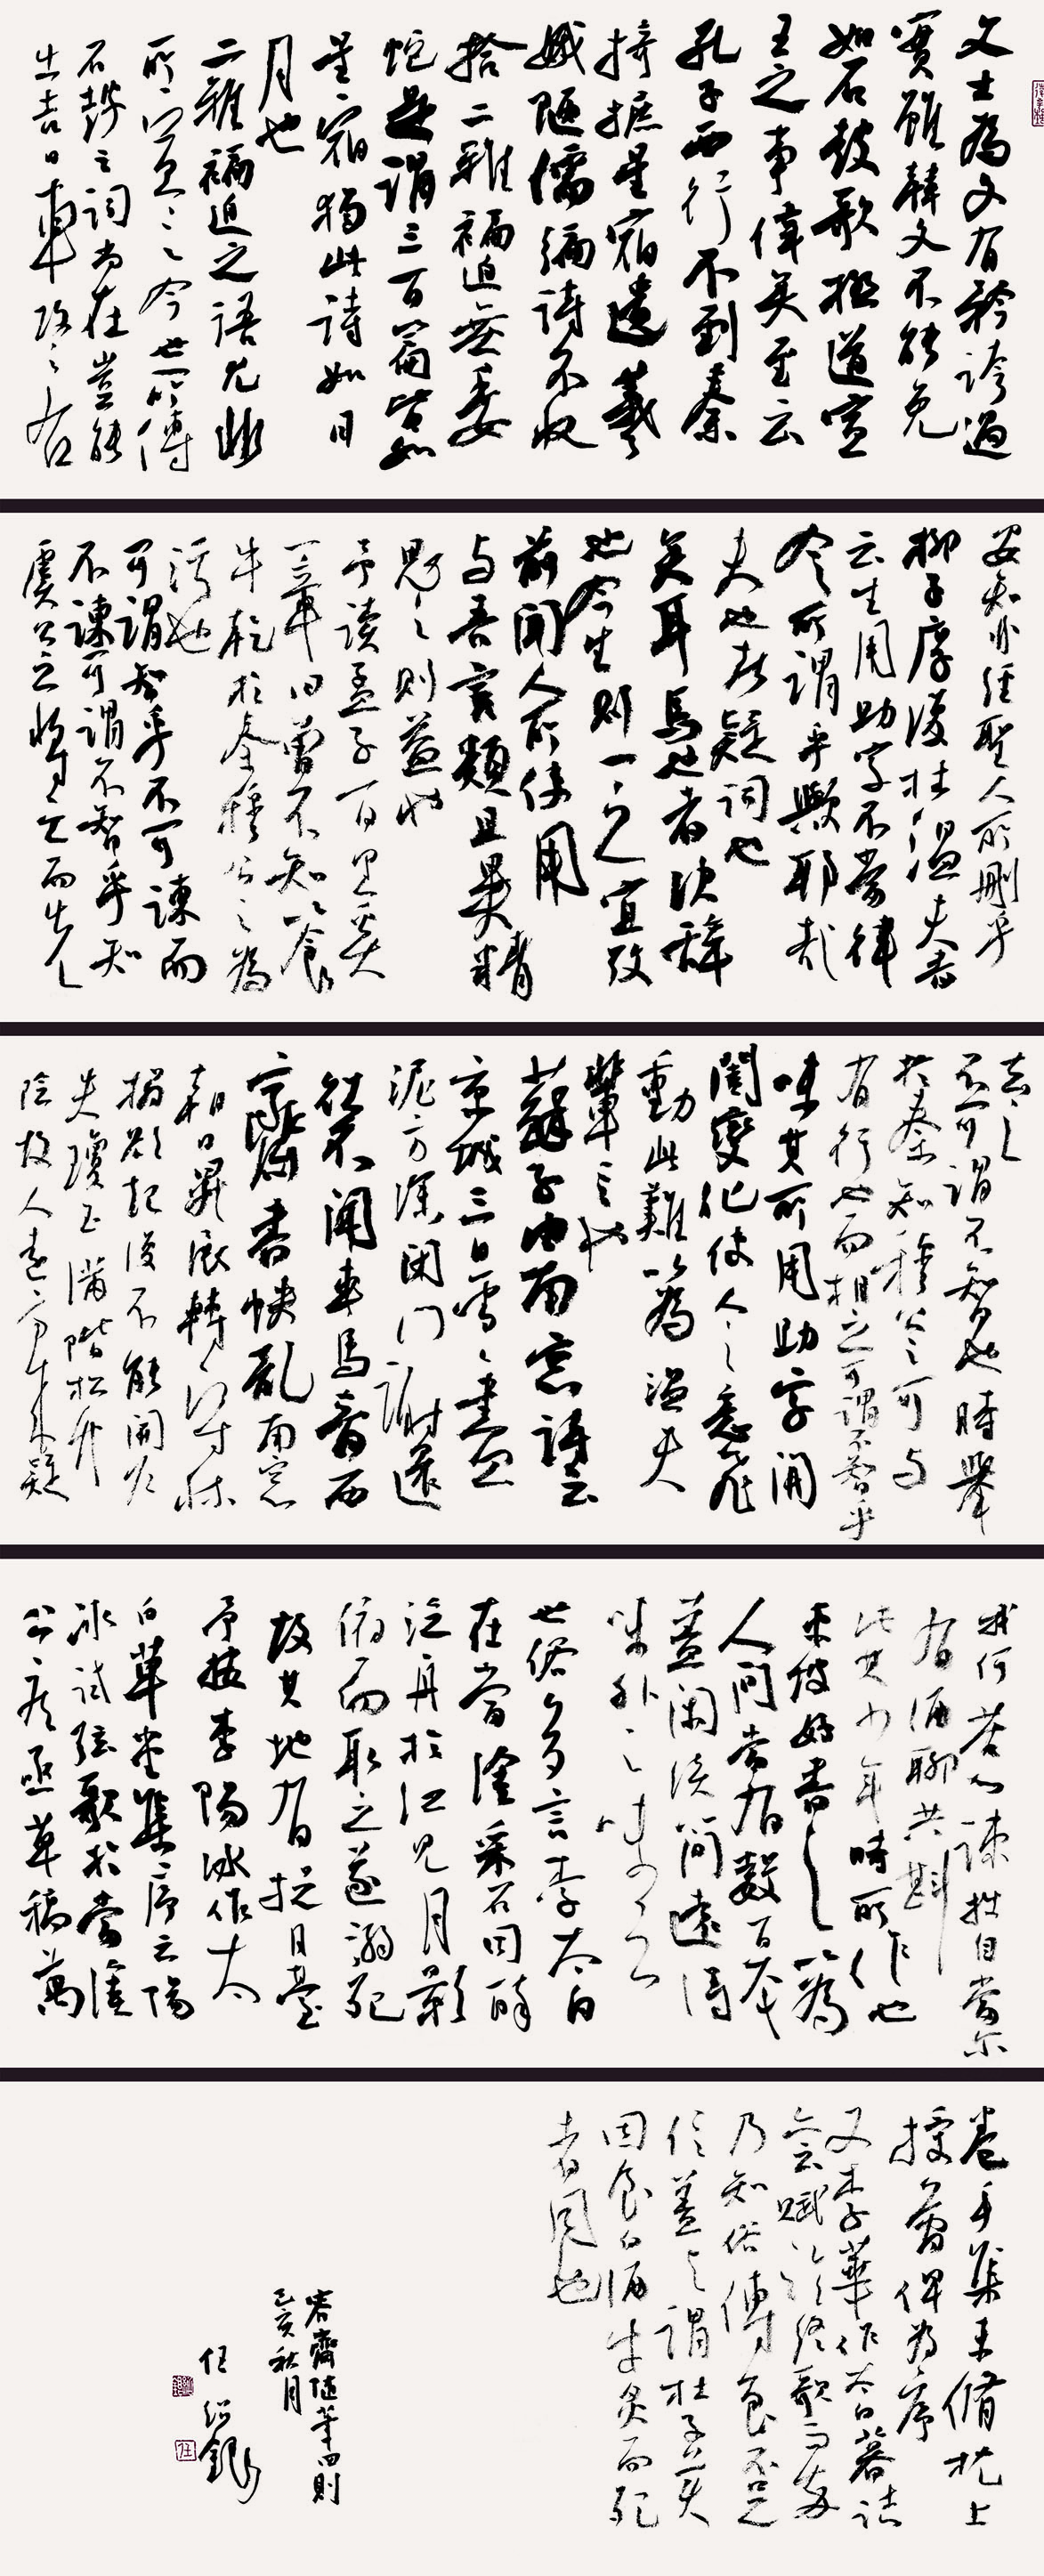 文士為文有矜誇過
實雖韓文不能免
如石鼓歌極道宣
王之事偉矣至云
孔子西行不到秦
掎摭星宿遺羲
娥陋儒編詩不收
拾二雅褊迫無委
蛇是謂三百篇皆如
星宿獨此詩如日
月也
二雅褊迫之語尤非
所宜言今世所傳
石鼓之詞尚在豈能
出吉日車攻之右
安知非經聖人所刪乎
柳子厚復杜溫夫書
云生用助字不當律
令所謂乎歟耶哉
夫也者疑詞也
矣耳焉也者決辭
也今生則一之宜攷
前聞人所使用
与吾言類且異精
思之則益也
予讀孟子百里奚
一章曰曾不知以食
牛干於秦穆公之為
汙也
可謂智乎不可諫而
不諫可謂不智乎知
虞公之將亡而先
去之
不可謂不智也時舉
於秦知穆公之可与
有行也而相之可謂不智乎
味其所用助字開
闔變化使人之意飛
動此難以為溫夫
輩言也
蘇子由南窗詩云
京城三日雪雪盡
泥方深閉門謝還
往不聞車馬音西
齋書帙亂南窗
朝日昇展轉守床
榻欲起復不能開戶
失瓊玉滿階松竹
陰故人遠方來疑
我何苦心疎拙自當尔
有酒聊共斟
此其少年時所作也
東坡好書之以為
人間當有數百本
蓋閑淡簡遠得
味外之味云
世俗多言李太白
在當塗采石因醉
泛舟於江見月影
俯而取之遂溺死
故其地有捉月臺
予按李陽冰作太
白草堂集序云陽
冰試弦歌於當塗
公疾亟草稿萬
卷手集未脩枕上
授簡俾為序
又李華作太白墓誌
亦云賦臨終歌而卒
乃知俗傳良不足
信蓋与謂杜子美
因食白酒牛炙而死
者同也
容齋随筆四則
乙亥秋月
任